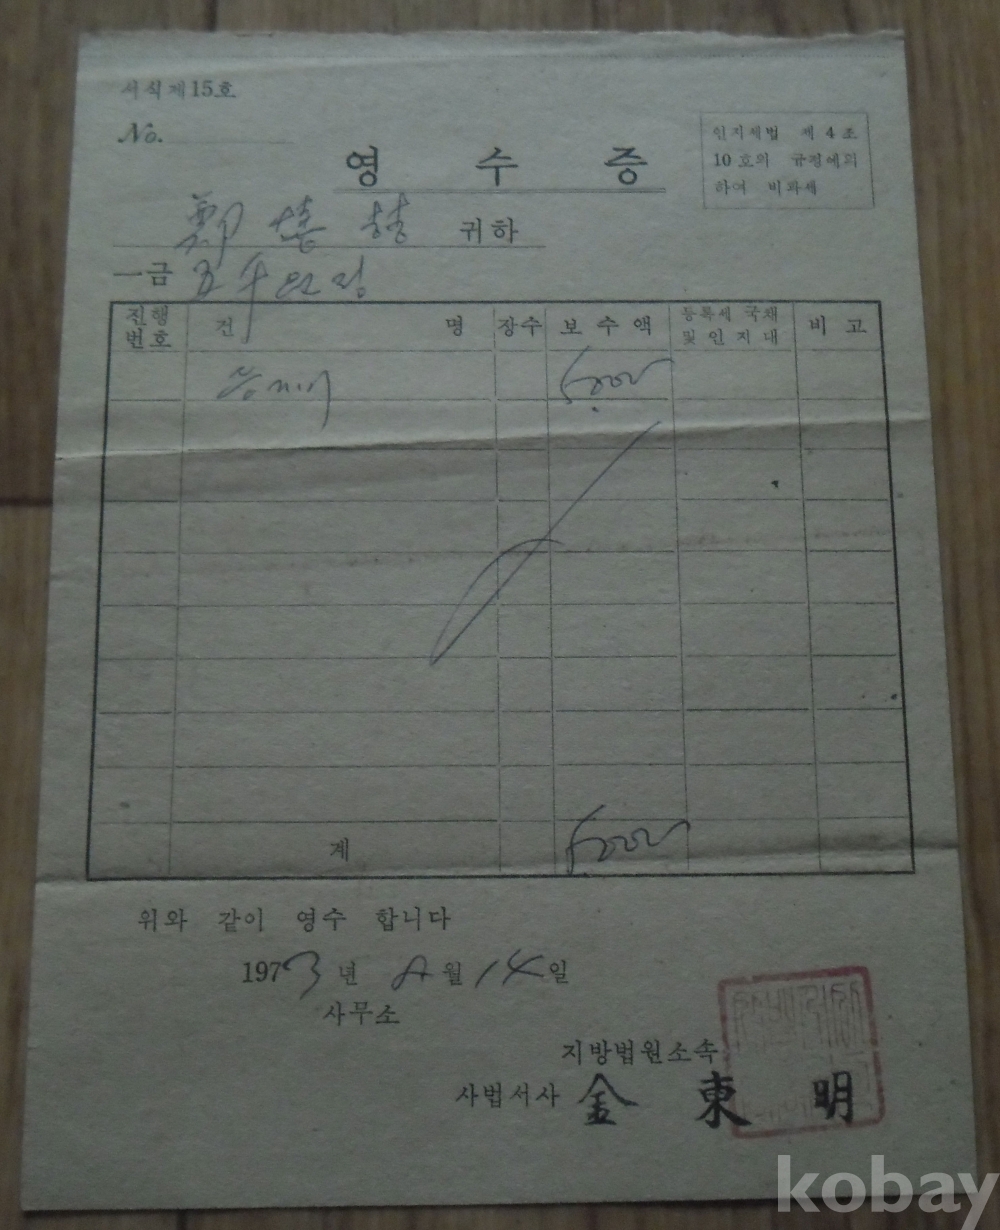 서식제15호
No.
인지세법 제4조
10호의 규정에의
하여 비과세
영 수 증
鄭 귀하
一금 五千원정
진행번호 건 명 장수 보수액 등록세 국채 및 인지대 비고
5,000
계 5000
위와 같이 영수 합니다
1973년 8월 14일
사무소
지방법원소속
사법서사 金東明
kobay